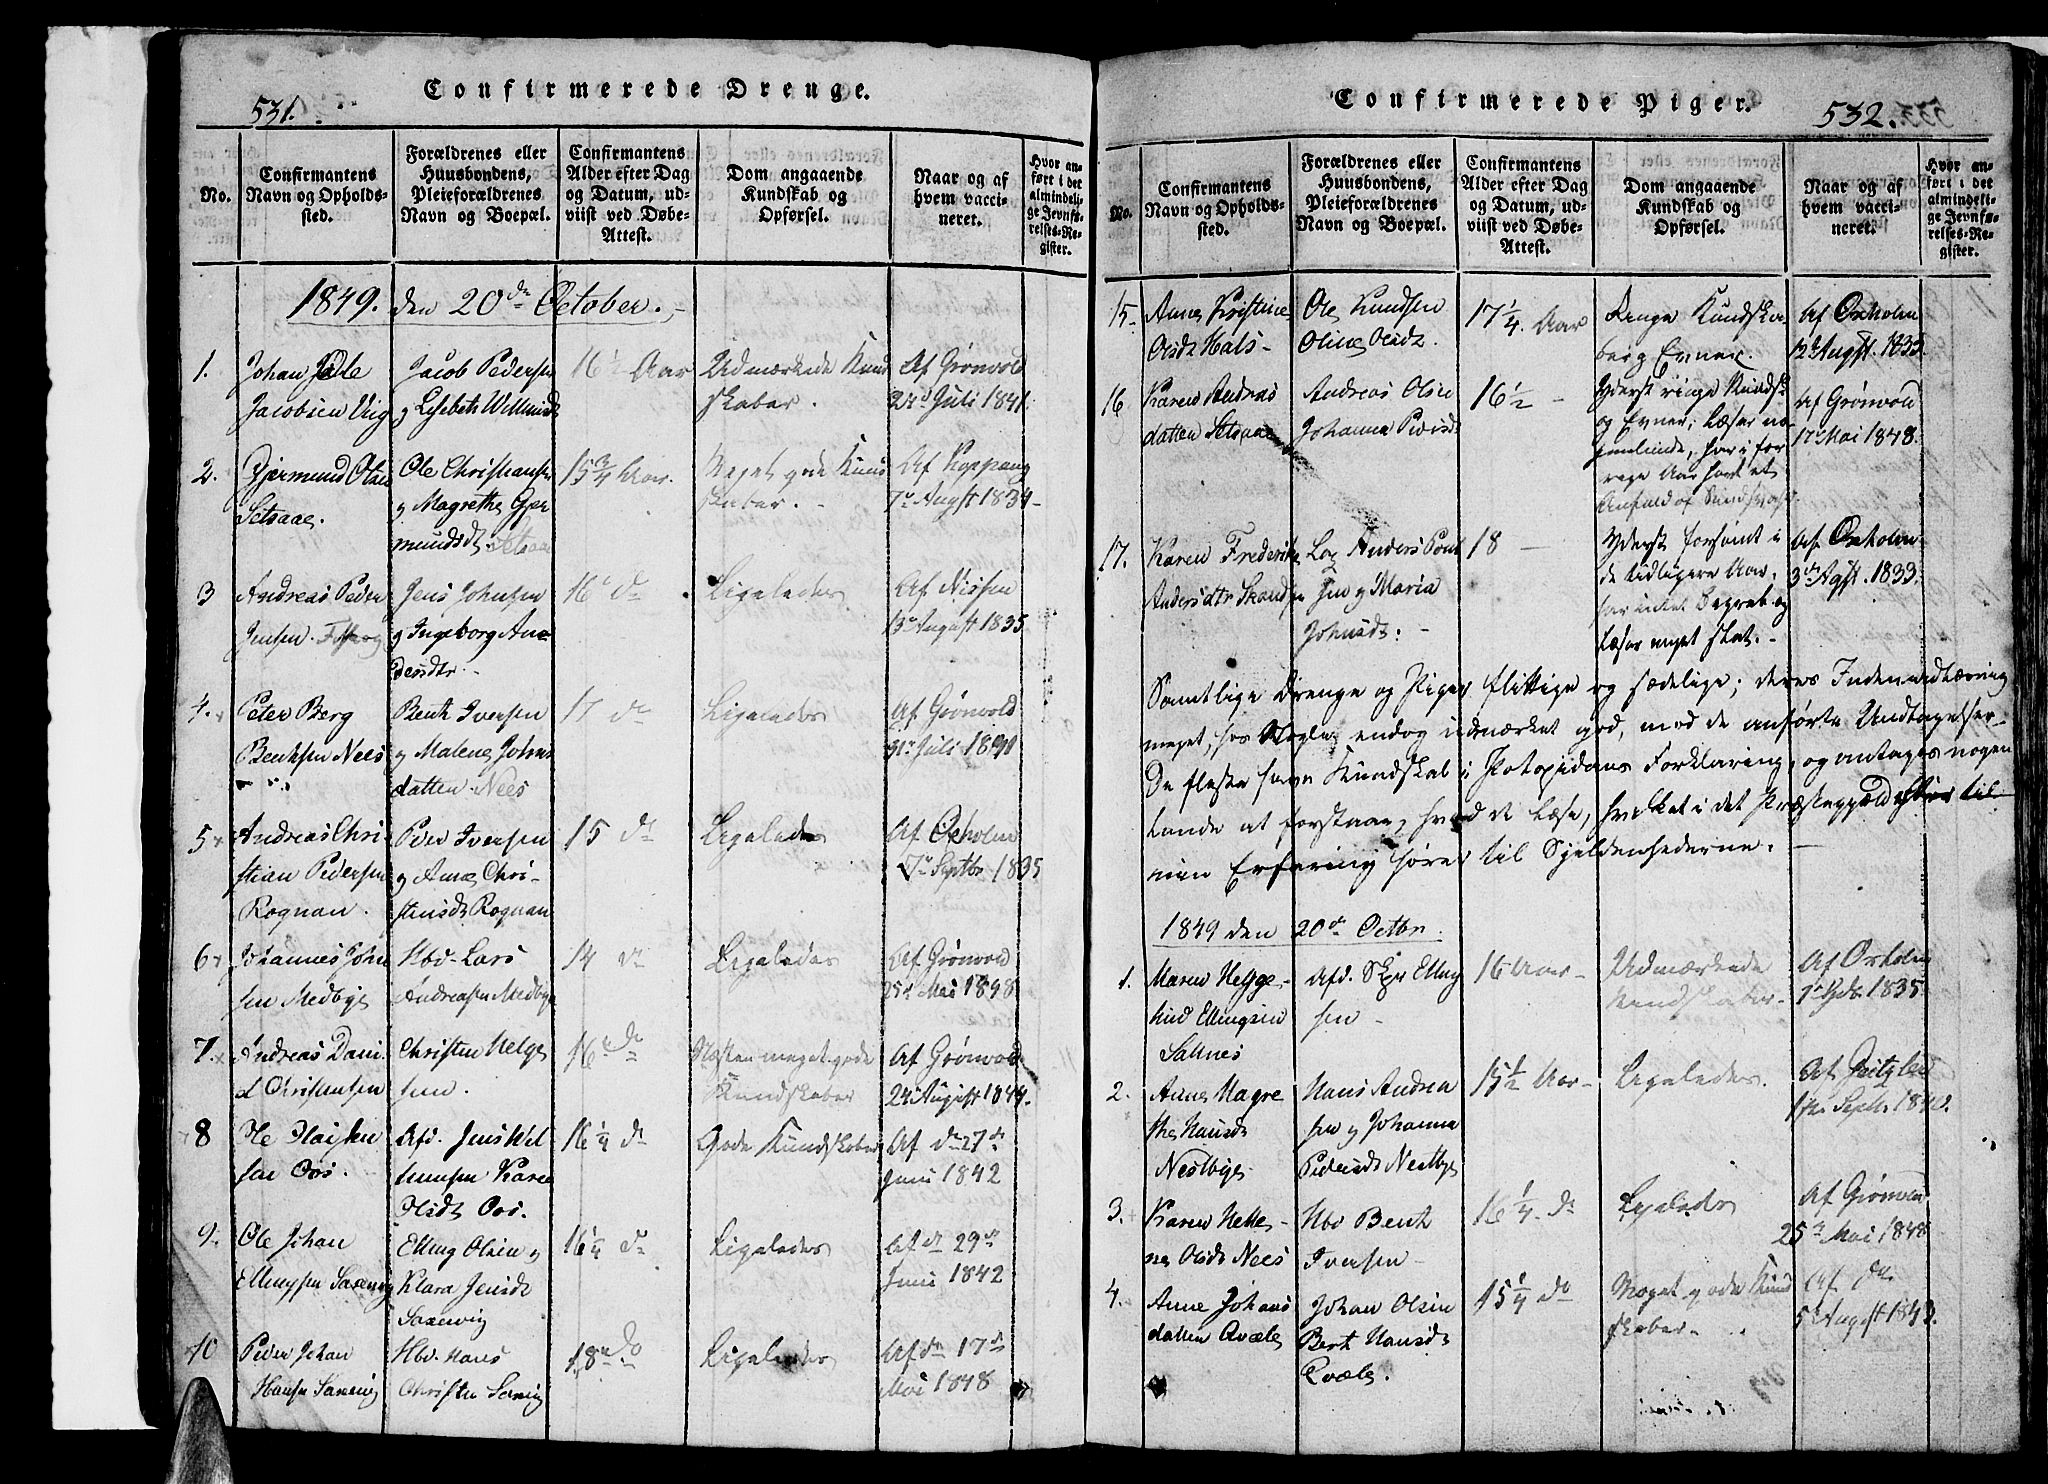 531.
Confirmerede Drenge.
No.
Confirmantens
Navn og Opholds-
sted.
Forældrenes eller
Huusbondens,
Pleieforældrenes
Navn og Boepæl.
Confirmantens
Alder efter Dag
og Datum, ud-
viist ved Døbe-
Attest.
Dom angaaende
Kundskab og
Opførsel.
Naar og af
hvem vacci-
neret.
Hvor an-
ført i det
almindeli-
ge Jevnfø-
relses-Re-
gister.
1849. den 20de October.
1.
Johan
Jacobsen
Jacob Pedersen
og Lisebeth
16½ Aar
Udmærkede Kund
skaber.
Af Grønvold
Juli 1841.
2.
Gjermund Olsen
Setsaae.
Ole Christiansen
og Magrethe Gjer
mundsdt. Setsaae
15¾ Aar.
Meget gode Kund
skaber.
Af Koppang
7de Augst 1834
3
Andreas Peder
Jensen.
Jens Johnsen
og Ingeborg An
dersdtr.
16 do
Ligeledes
Af Nissen
13de August 1835
4.
Peter Berg
Bentsen Nees
Bent Iversen
og Malene Johns
datten Nees
17 do
Ligeledes
Af Grønvold
31te Juli
5
Andreas Chri
stian Pedersen
Rognan.
Peder Iversen
og Anne Chri-
stensdt Rognan
15 do
Ligeledes
Af Oxholm
7de Septbr 1835
6
Johannes John
sen Medbye
Hbd. Lars
Andreasen Medbye
14 do
Ligeledes
Af Grønvold
25de Mai 1848
7.
Andreas Dani
el Christensen
Christen Helge
sen.
16 do
Næsten meget gode
Kundskaber
Af Grønvold
24de August 1844.
8
sen Os.
Afd. Jens
Karen
Olsdt Os.
16¼ do
Gode Kundskaber
Af do 27de
Juni 1842
9.
Ole Johan
Ellingsen Saxenvig
Elling Olsen og
Klara Jensdt
Saxenvig
16¼ do
Ligeledes
Af do 29de
Juni 1842
10
Peder Johan
Hansen Saxenvig
Hbd. Hans
Christen
18 do
Ligeledes
Af do 17de
Mai 1848
Confirmerede Piger.
532.
No.
Confirmantens
Navn og Opholds-
sted.
Forældrenes eller
Huusbondens,
Pleieforældrenes
Navn og Boepæl.
Confirmantens
Alder efter Dag
og Datum, ud-
viist ved Døbe-
Attest.
Dom angaaende
Kundskab og
Opførsel.
Naar og af
hvem vacci-
neret.
Hvor an-
ført i det
almindeli-
ge Jevnfø-
relses-Re-
gister.
15.
Anne Kristine
Olsdt Hals
Ole Knudsen
Oline Olsdt.
17¼ Aar
Ringe Kundska-
ber og Evner.
Af Oxholm
12de Augst. 1833.
16
Karen Andreas
datten Setsaae
Andreas Olsen
Johanna Pedersdt
16½
Yderst ringe Kundsk.
og Evner; Læser no-
genlunde, har i for-
rige Aar havt et
Anfald af
Af Grønvold
17de Mai 1848.
17.
Karen Frederikke
Andersdtr
Anders
og Maria
Johnsdt.
18
Yderst forsømt i
de tidligere Aar,
har intet Begreb og
Læser meget slet.
Af Oxholm
3de Agst. 1833.
Samtlige Drenge og Piger flittige og sædelige; deres Indenadlæsning
meget, hos Nogle endog udmærket god, med de anførte Undtagelser.
De fleste have Kundskab i Pontopidans Forklaring, og antages nogen
lunde at forstaae, hvad de læse, hvilket i det Præstegjeld efter til
min Erfaring hører til Sjeldenhederne.
1849 den 20de Octbr.
1.
Maren
Ellingsen
Saltnes
Afd. Skpr Elling
sen
16 Aar
Udmærkede
Kundskaber
Af Oxholm
1835
2.
Anne Magre
the Hansdt
Nestbye
Hans Andrea
sen og Johanna
Pedersdt Nestbye
15½ Aar
Ligeledes.
Af
Septb. 1840.
3.
Karen Helle-
ne Olsdt Nees
Hbd Bent
Iversen
16¼ do
Ligeledes
Af Grønvold
25de Mai 1848
4.
Anne Johans
datten Qvæle
Johan Olsen
Berit Hansdt
Qvæle.
15¼ do
Meget gode Kund
skaber
Af do
5te August